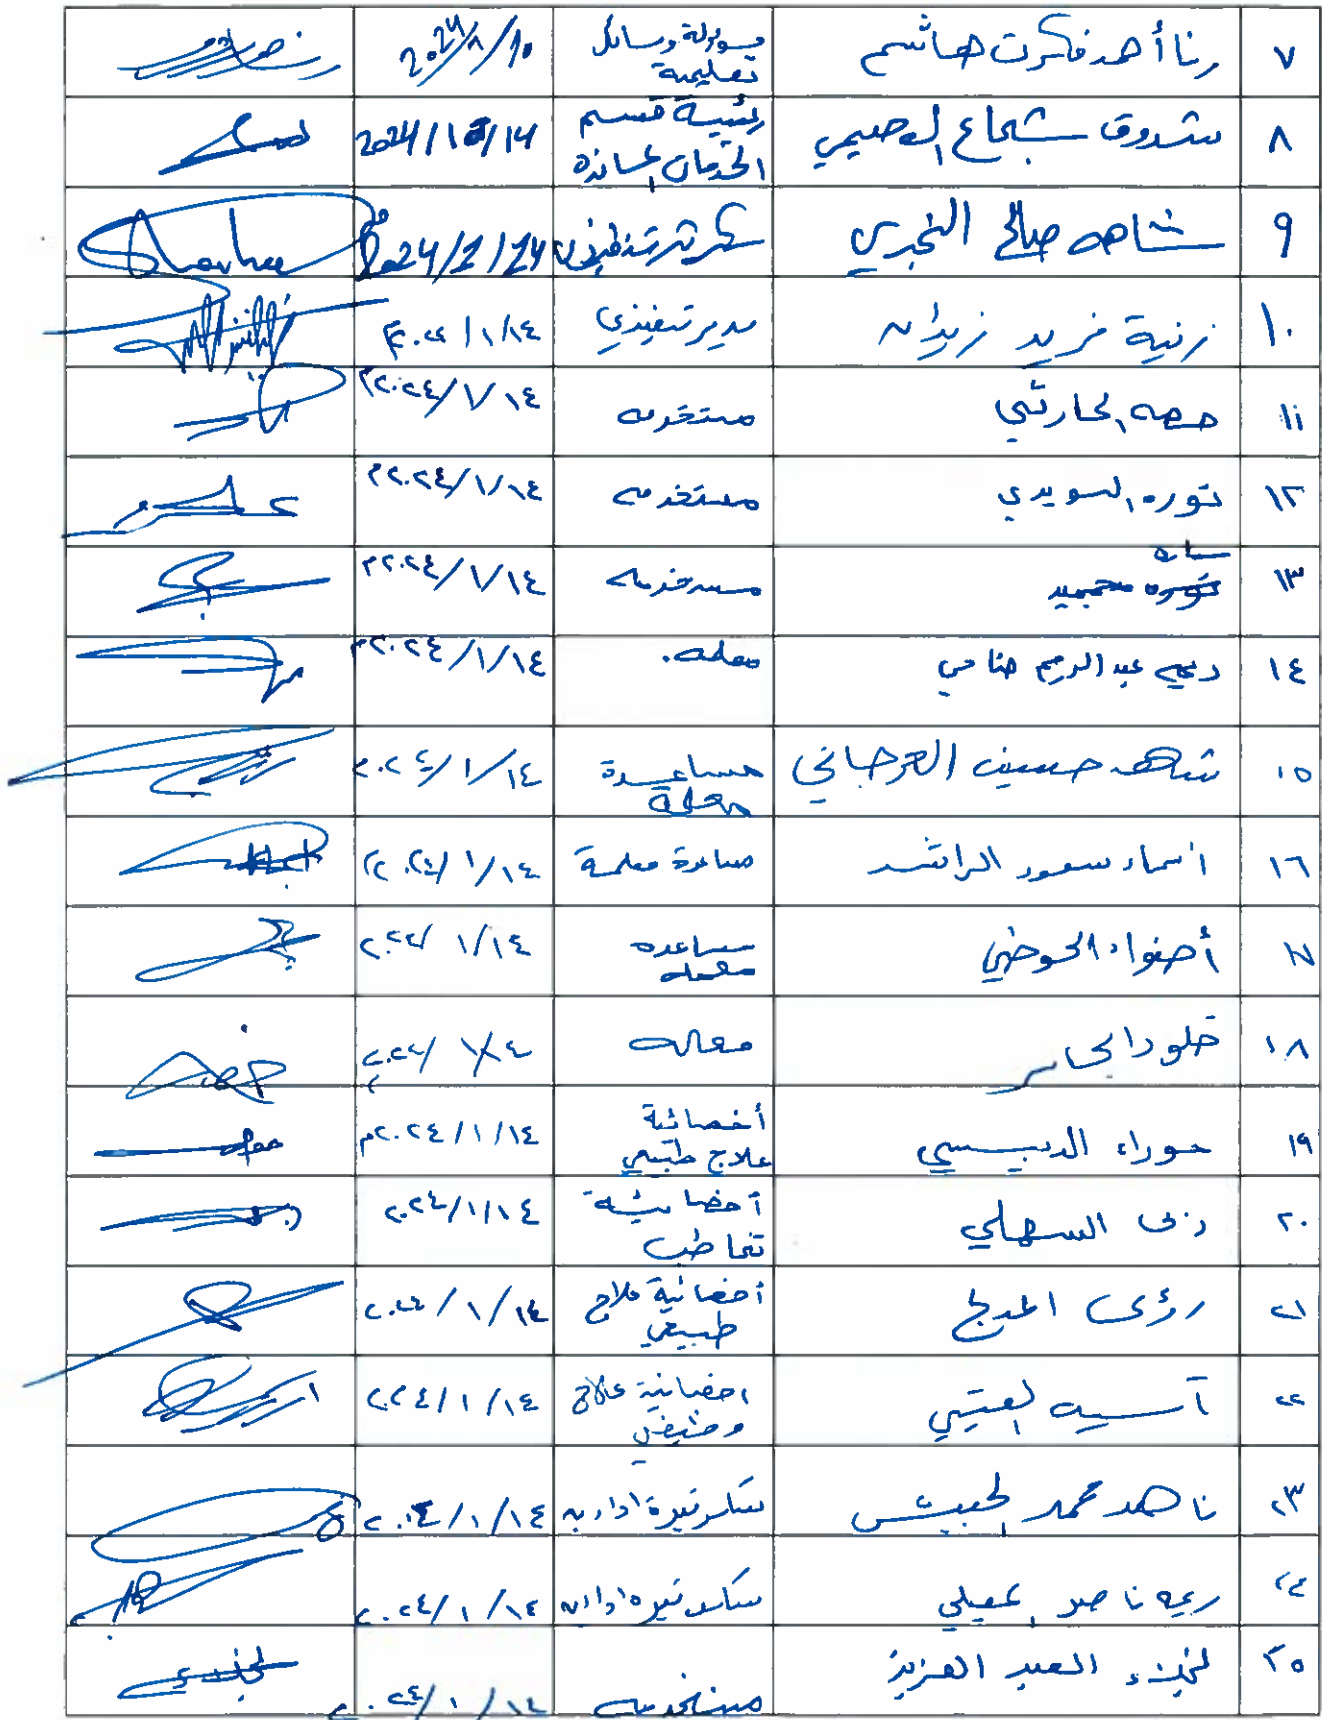 ٧ رنا أحمد فكرت هاشم مسؤولة وسائل تعليمية ٢٠٢٤/١/١٠
٨ شروق شجاع العصيمي رئيسة قسم الخدمات المساندة 2024/10/14
9 شاهه صالح النجدي سكرتير تنفيذي 2024/1/14
١٠ رنية فريد زيدان مدير تنفيذي ٢٠٢٤/١/١٤م
١١ حصه الحارثي مستخدمه ٢٠٢٤/١/١٤م
١٢ نوره السويدي مستخدمه ٢٠٢٤/١/١٤م
١٣ ساره نوره محيميد مسخدمه ٢٠٢٤/١/١٤م
١٤ عبد الرحيم معلمه. ٢٠٢٤/١/١٤م
١٥ شهد حسين العرجاني مساعدة معلمة ٢٠٢٤/١/١٤
١٦ أسماء سعود الراشد مساعدة معلمة ٢٠٢٤/١/١٤
١٧ أضواء الحوطي مساعده معلمه ٢٠٢٤/١/١٤
١٨ خلود الجابر معلمه ٢٠٢٤/١/١٤
١٩ حوراء الدبيسي أخصائية علاج طبيعي ٢٠٢٤/١/١٤م
٢٠ ربى السهلي أخصائية تخاطب ٢٠٢٤/١/١٤
٢١ رؤى المديح أخصائية علاج طبيعي ٢٠٢٤/١/١٤
٢٢ آسيه العتيبي اخصائية علاج وظيفي ٢٠٢٤/١/١٤
٢٣ ناهد محمد الحبيش سكرتيرة اداريه ٢٠٢٤/١/١٤
٢٤ ريم ناصر سكرتيره اداريه ٢٠٢٤/١/١٤
٢٥ العبد العزيز مستخدمه ٢٠٢٤/١/١٤